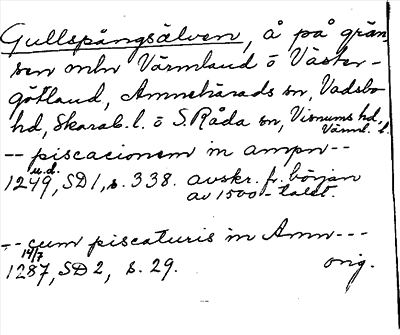 Gullspångsälven, å på grän-
sen mln Värmland o Väster-
götland, Amnehärads sn, Vadsbo
hd, Skarab. l. o S. Råda sn, Visnums hd,
Värml. l.
-- piscacionem in ampn --
u.d.
1249, SD 1, s. 338. avskr. fr. början
av 1500-talet.
-- cum piscaturis in Amn ---
14/7
1287, SD 2, s. 29. orig.